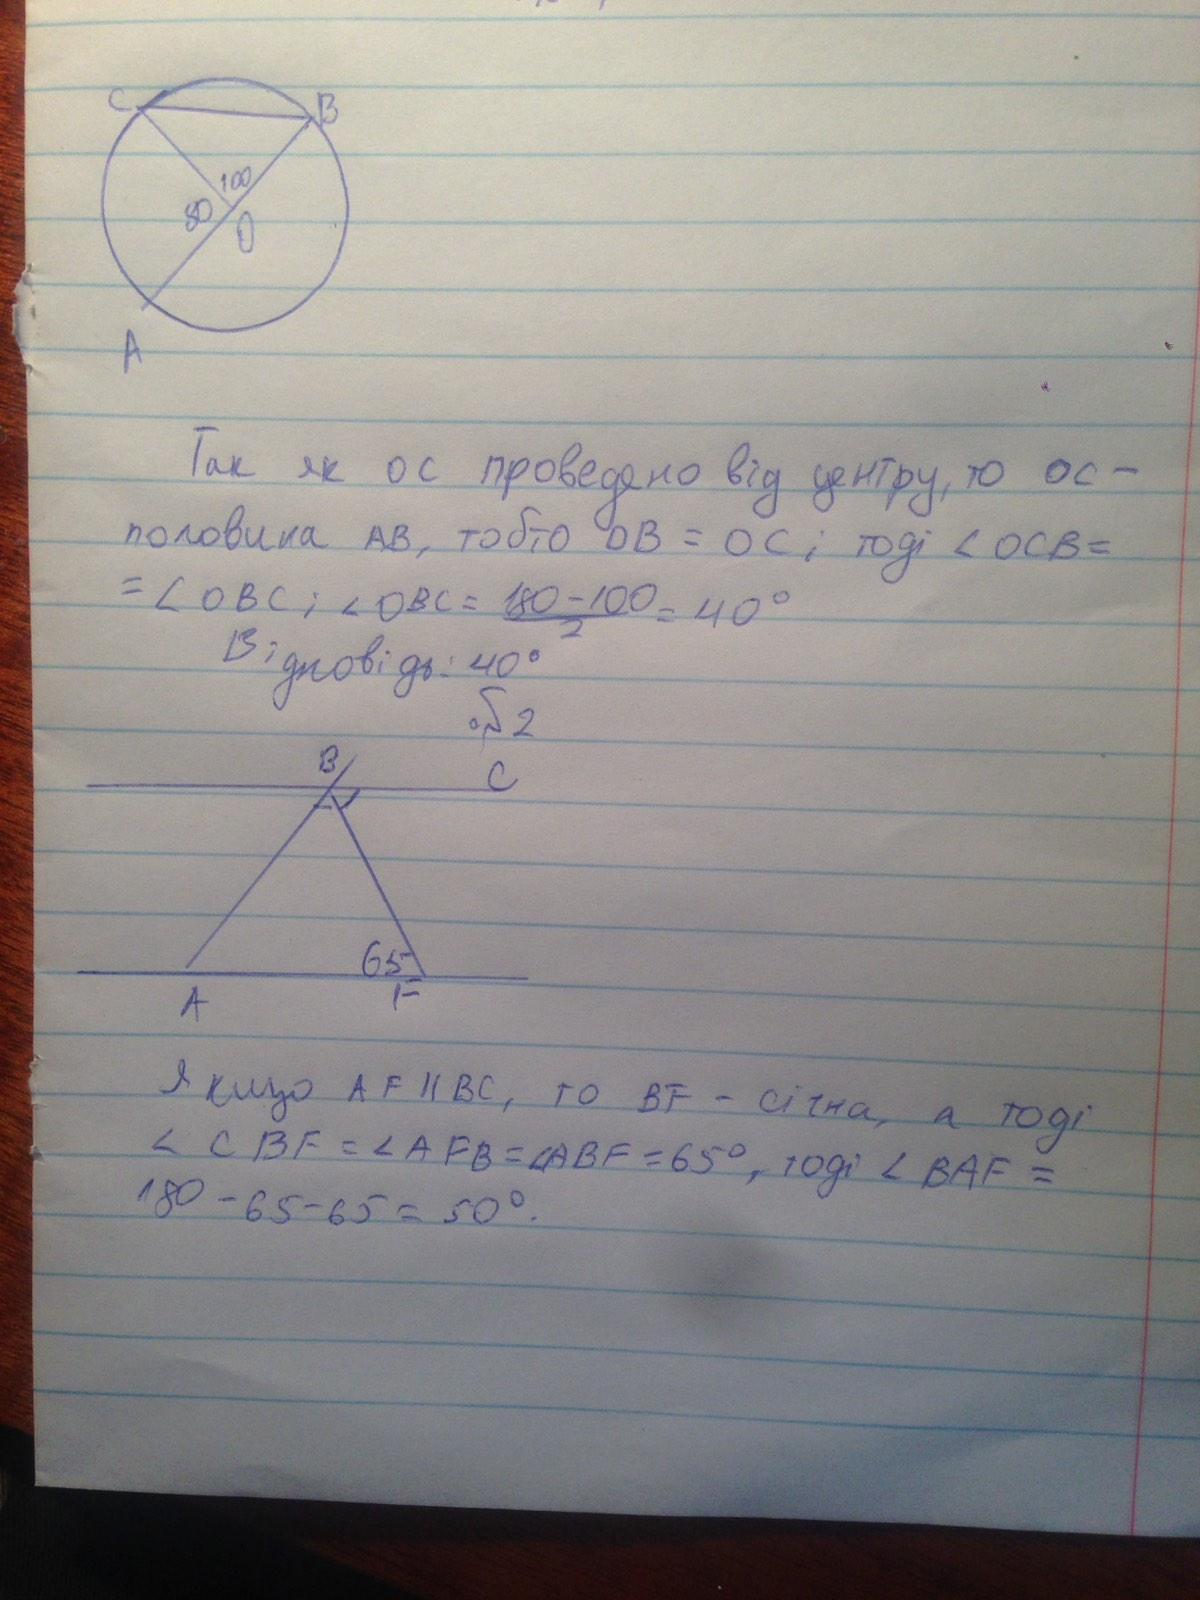 C
B
100
80
O
A
Так як OC проведено від центру, то OC -
половина AB, тобто OB = OC; тоді ∠OCB =
= ∠OBC; ∠OBC = 180 - 100 / 2 = 40°
Відповідь: 40°
№2
B
C
65
A
F
Якщо AF || BC, то BF - січна, а тоді
∠CBF = ∠AFB = ∠ABF = 65°, тоді ∠BAF =
180 - 65 - 65 = 50°.